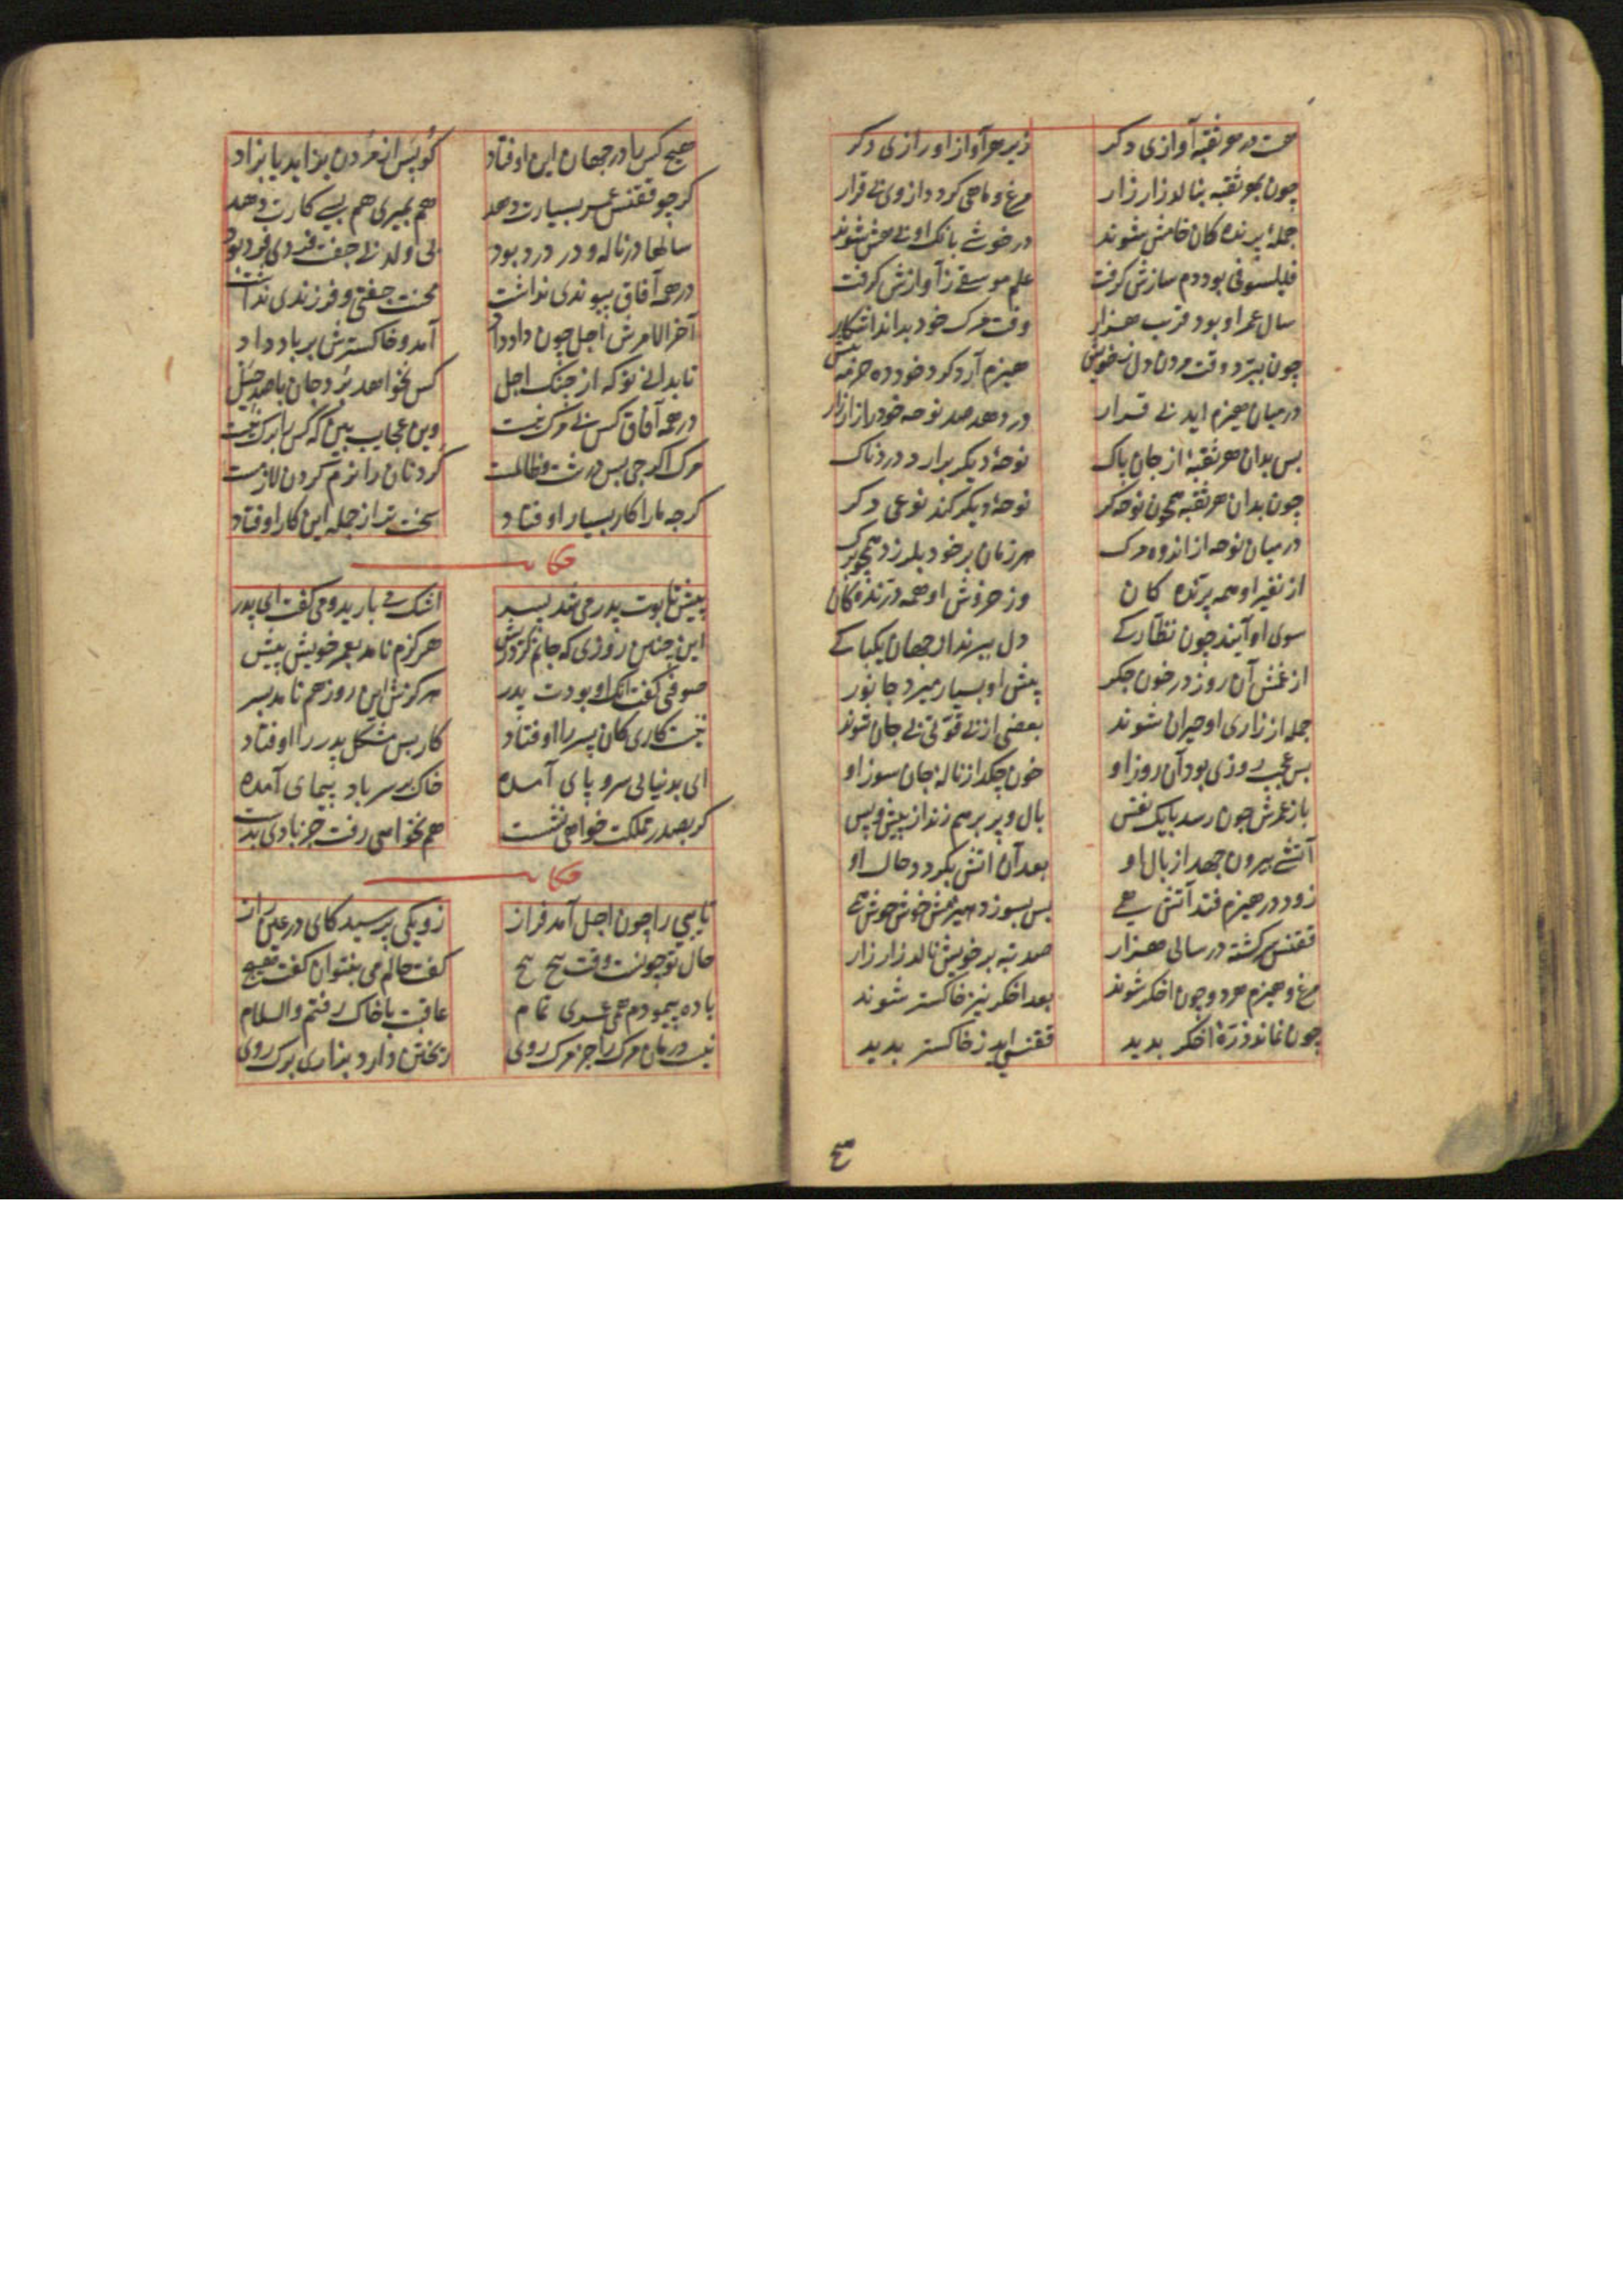 هست در هر ثقبه آوازی دکر زیر هر آواز او رازی دکر
چون بهر ثقبه بنالد زار زار مرغ و ماهی کردد از وی بی قرار
جملهٔ پرنده کان خامش شوند در خوشی بانک او بی هش شوند
فیلسوفی بود دم سازش کرفت علم موسیقی ز آوازش کرفت
سال عمر او بود قرب هزار وقت مرک خود بداند آشکار
چون ببرد وقت مردن دل ز خویش هیزم آرد کرد خود ده حزمه بیش
در میان هیزم اید بی قرار در دهد صد نوحه خود را زار زار
بس بدان هر ثقبهٔ از جان پاک نوحهٔ دیکر برارد دردناک
چون بدان هر ثقبه همچون نوحه کر نوحهٔ دیکر کند نوعی دکر
در میان نوحه از اندوه مرک هر زمان بر خود بلرزد همچو برک
از نفیر او همه پرنده کان وز خروش او همه درنده کان
سوی او آیند چون نظارکی دل ببرند از جهان یکبارکی
از غمش آن روز در خون جکر پیش او بسیار میرد جانور
جمله از زاری او حیران شوند بعضی از بی قوتی بی جان شوند
بس عجب روزی بود آن روز او خون چکد از ناله جان سوز او
باز عمرش چون رسد با یک نفس بال و پر برهم زند از پیش و پس
آتشی بیرون جهد از بال او بعد آن اتش بکردد حال او
زود در هیزم فتد آتش همی بس بسوزد هیزمش خوش خوش همی
مرغ و هیزم هر دو چون اخکر شوند بعد اخکر نیز خاکستر شوند
چون نماند ذرهٔ اخکر بدید ققنسی اید ز خاکستر بدید
هیچ
هیچ کس را در جهان این اوفتاد کو پس از مردن بزاید یا بزاد
کر چو ققنس عمر بسیارت دهد هم بمیری هم بسی کارت دهد
سالها در ناله و در درد بود بی ولد بی جفت فردی فرد بود
در همه آفاق پیوندی نداشت محنت جفتی و فرزندی نداشت
آخر الامرش اجل چون داد داد آمد و خاکسترش بر باد داد
تا بدانی تو که از چنک اجل کس نخواهد برد جان با صد حیل
در همه آفاق کس بی مرک نیست وین عجایب بین که کس را برک نیست
مرک اکر چی بس درشت و ظالمست کردنان را نرم کردن لازمست
کرچه ما را کار بسیار اوفتاد سخت تر از جمله این کار اوفتاد
حکایت
پیش تابوت پدر می شد پسر اشک می بارید و می کفت ای پدر
این چنین روزی که جانم کرد ریش هرکزم نامد بعمر خویش پیش
صوفی کفت انک او بودت پدر هرکزش این روز هم نامد بسر
نیست کاری کان پسر را اوفتاد کار بس مشکل پدر را اوفتاد
ای بدنیا بی سر و پای آمده خاک بر سر باد پیمای آمده
کر بصدر مملکت خواهی نشست هم نخواهی رفت جز بادی بدست
حکایت
نایی را چون اجل آمد فراز زو یکی پرسید کای در عین راز
حال تو چونست وقت پیچ پیچ کفت حالم می بنتوان کفت هیچ
باده پیمودم همی عمری تمام عاقبت با خاک رفتم والسلام
نیست درمان مرک را جز مرک روی ریختن دارد بزاری برک روی